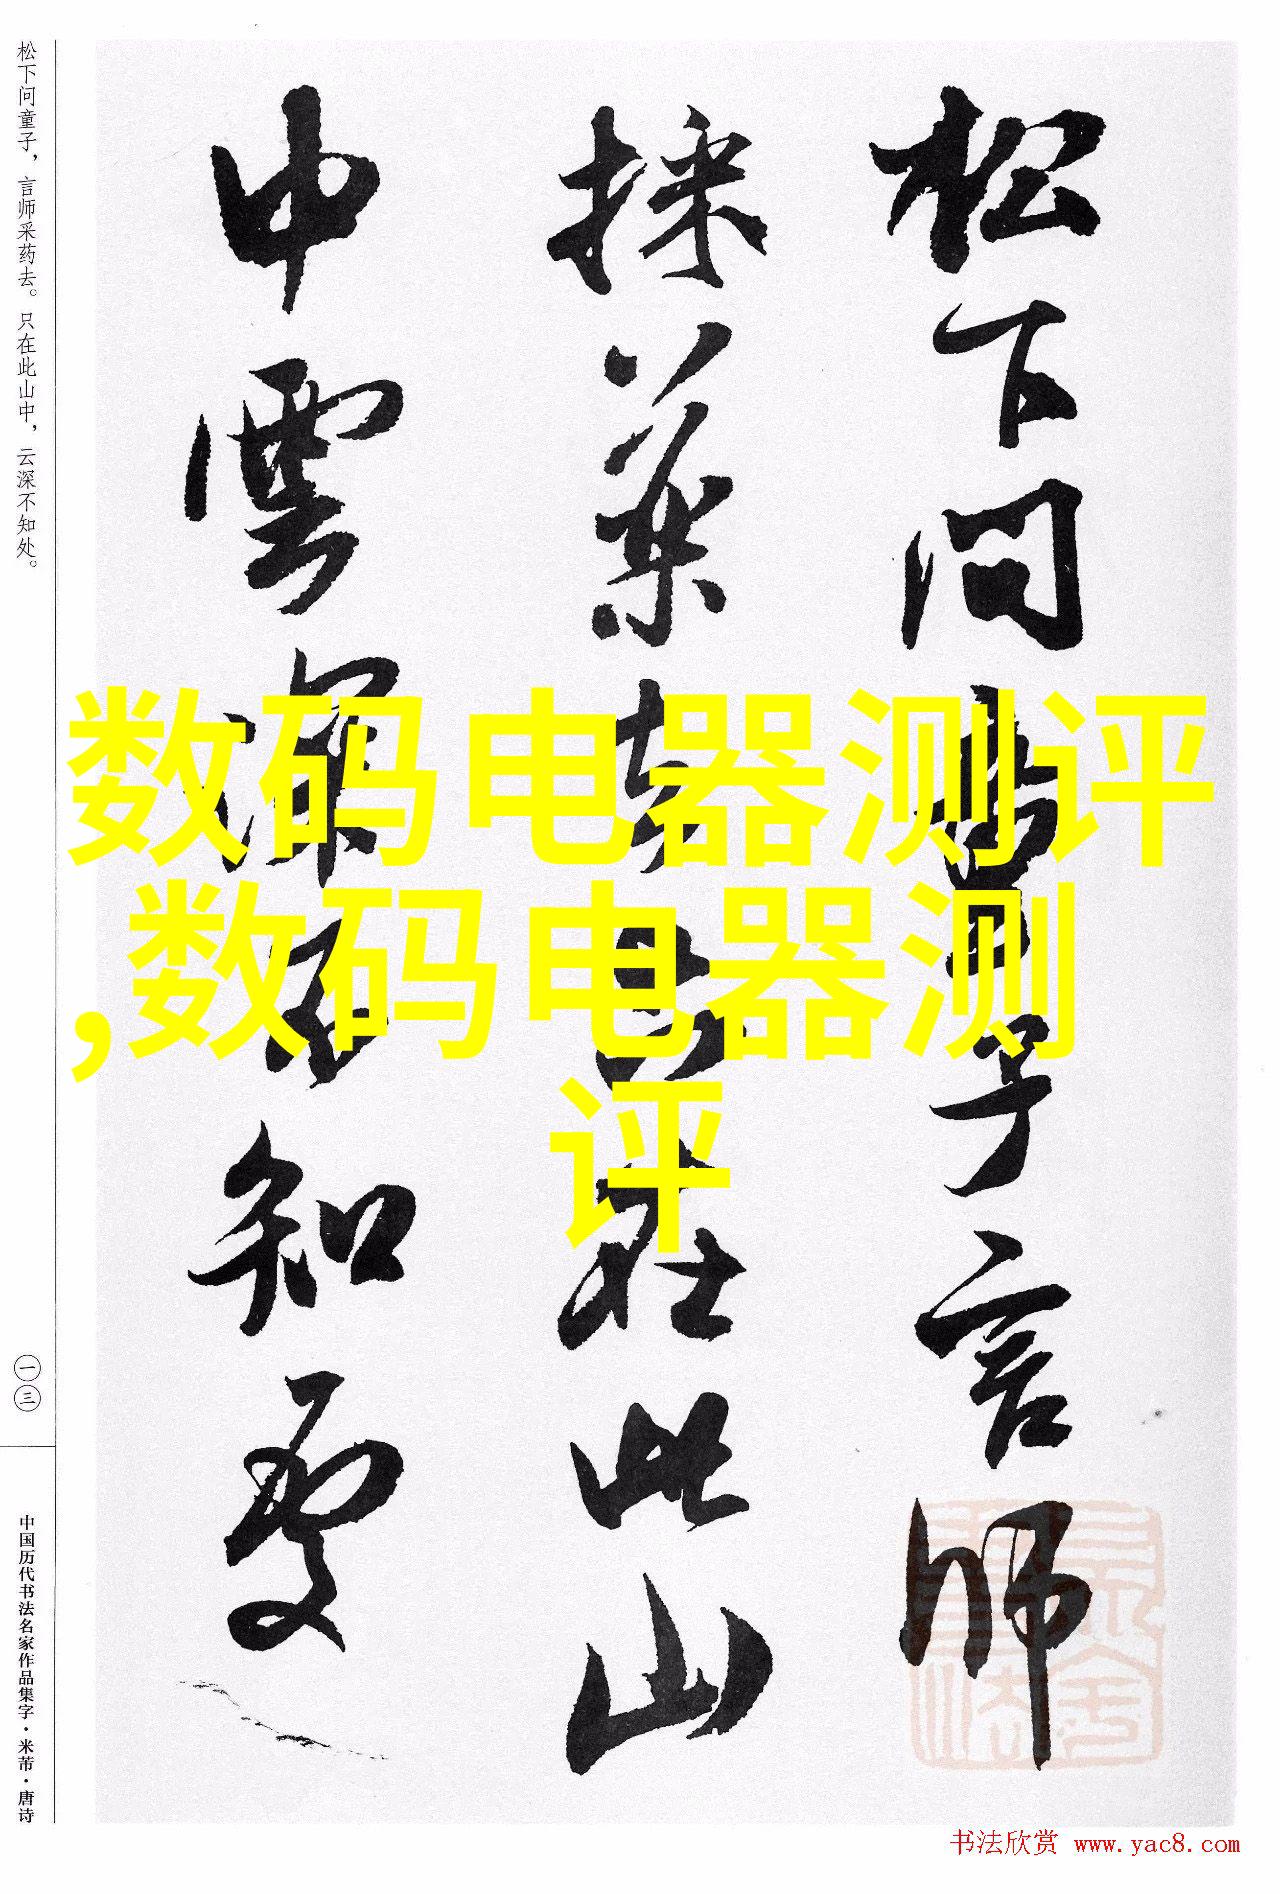 松下问童子，言师采药去。只在此山中，云深不知处。
一三
中国历代书法名家作品集字·米芾·唐诗
松下问童子言师
採药去只在此山
中雲深不知處
数码电器测评
,数码电器测
评
书法欣赏 www.yac8.com